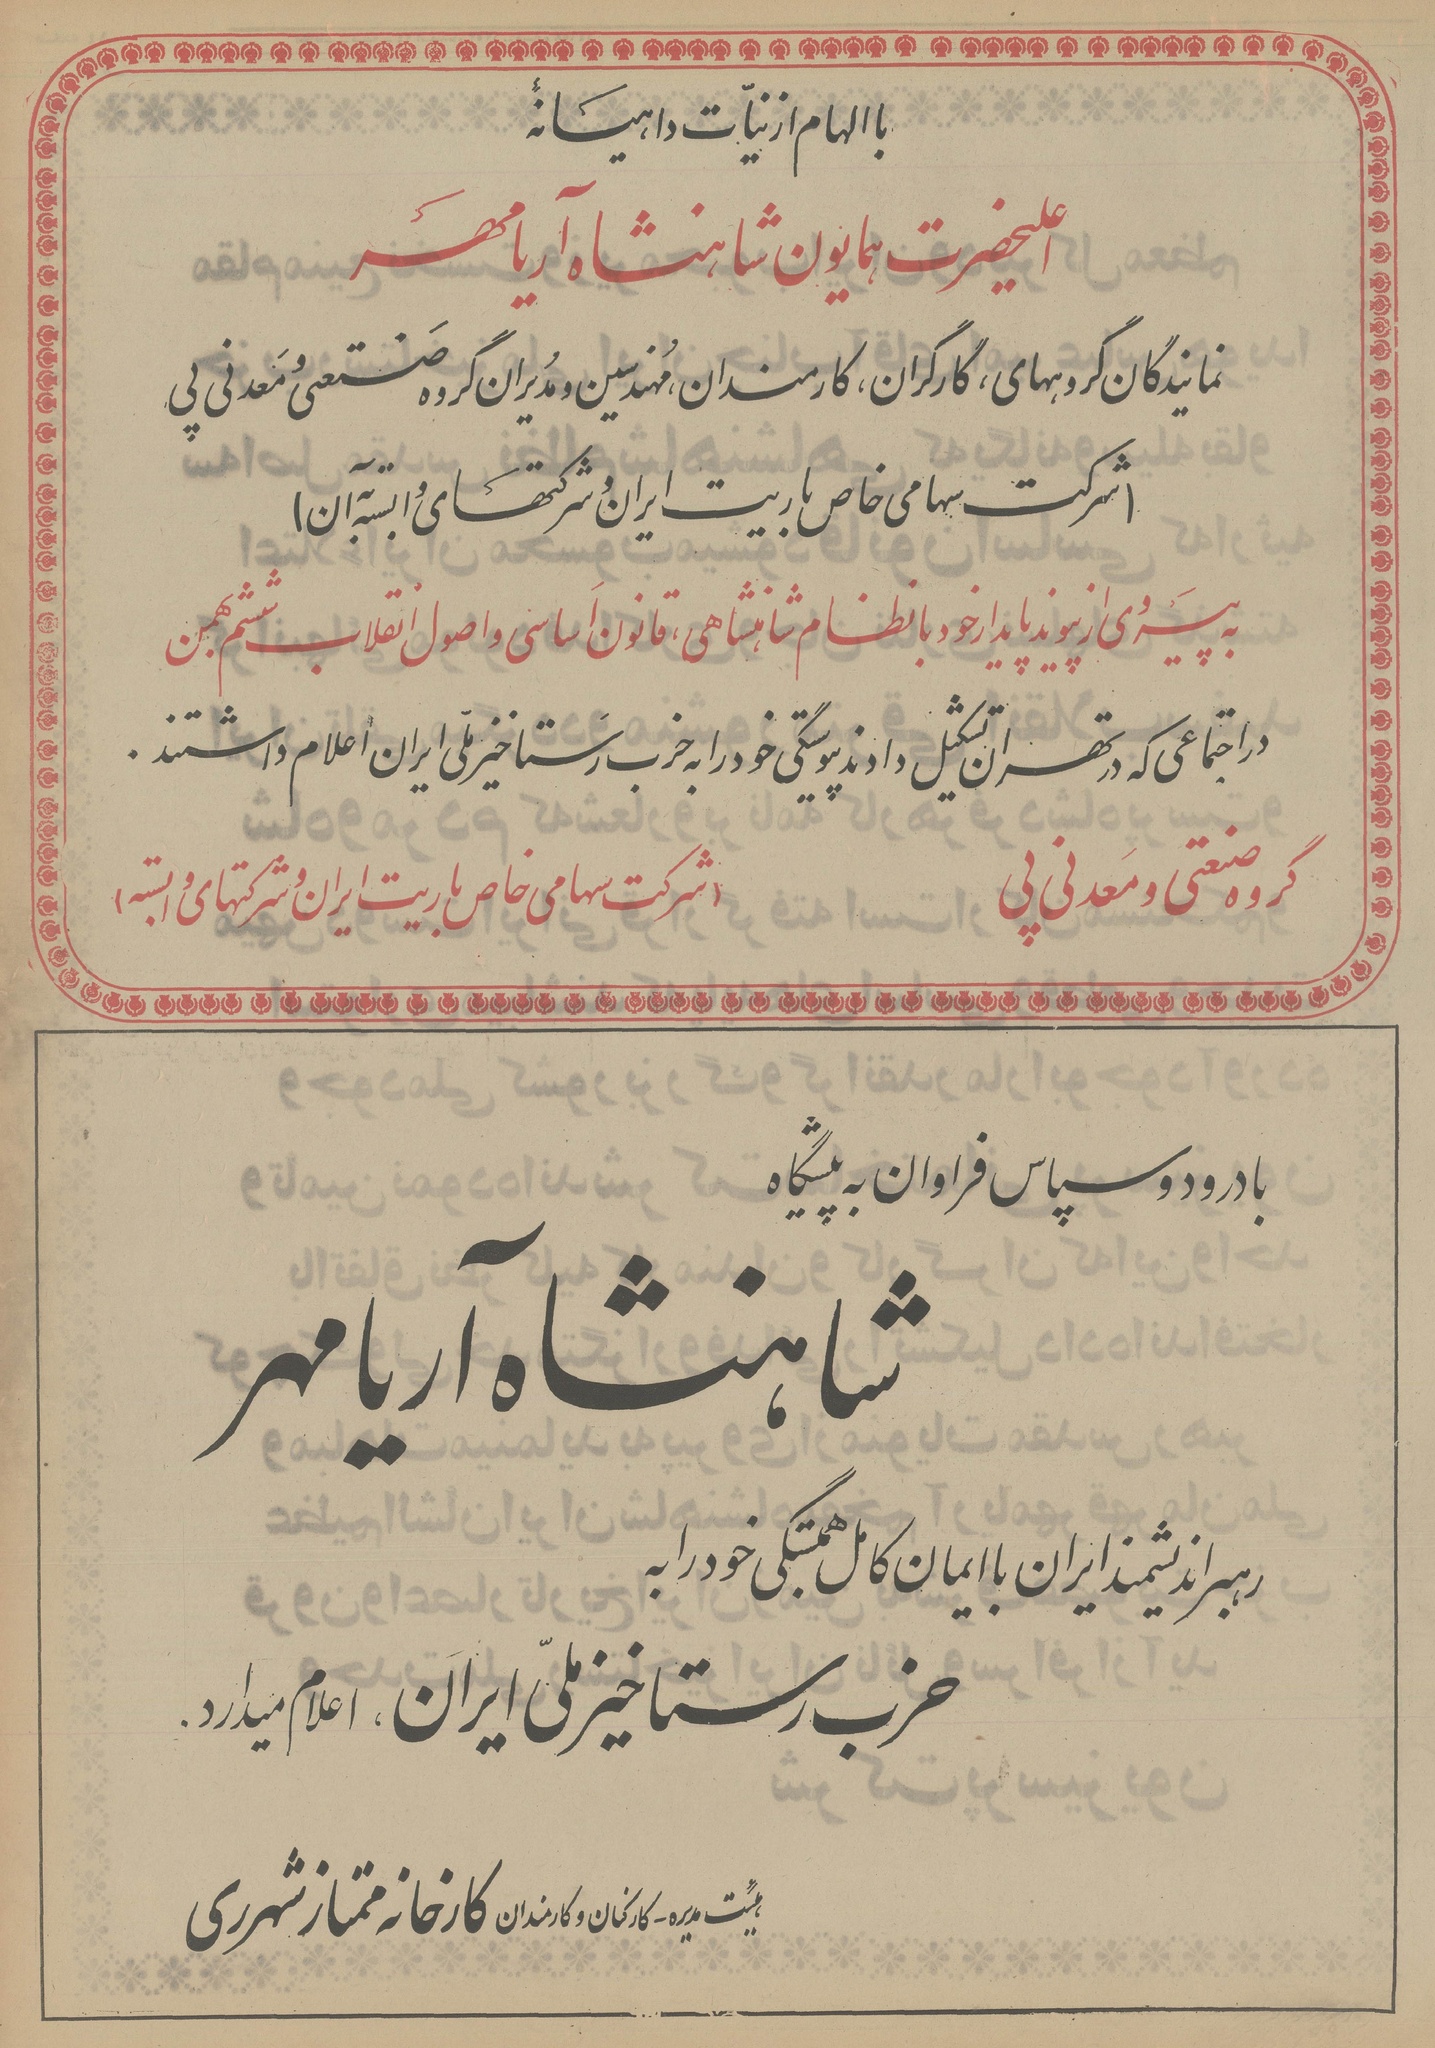 با الهام از نیّات داهیانهٔ
اعلیحضرت همایون شاهنشاه آریامهر
نمایندگان گروههای، کارگران، کارمندان، مُهندسین و مُدیران گروه صَنعتی و مَعدنی پی
(شرکت سهامی خاص باریت ایران و شرکتهای وابسته بآن)
به پیروی از پیوند پایدار خود با نظام شاهنشاهی، قانون اَساسی و اصول انقلاب ششم بهمن
در اجتماعی که در تهران تشکیل دادند پیوستگی خود را به حزب رَستاخیز ملّی ایران اعلام داشتند.
گروه صنعتی و مَعدنی پی
(شرکت سهامی خاص باریت ایران و شرکتهای وابسته)
با درود و سپاس فراوان به پیشگاه
شاهنشاه آریامهر
رهبر اندیشمند ایران با ایمان کامل همبستگی خود را به
حزب رستاخیز ملّی ایران، اعلام میدارد.
هیئت مدیره - کارکنان و کارمندان کارخانه ممتاز شهرری